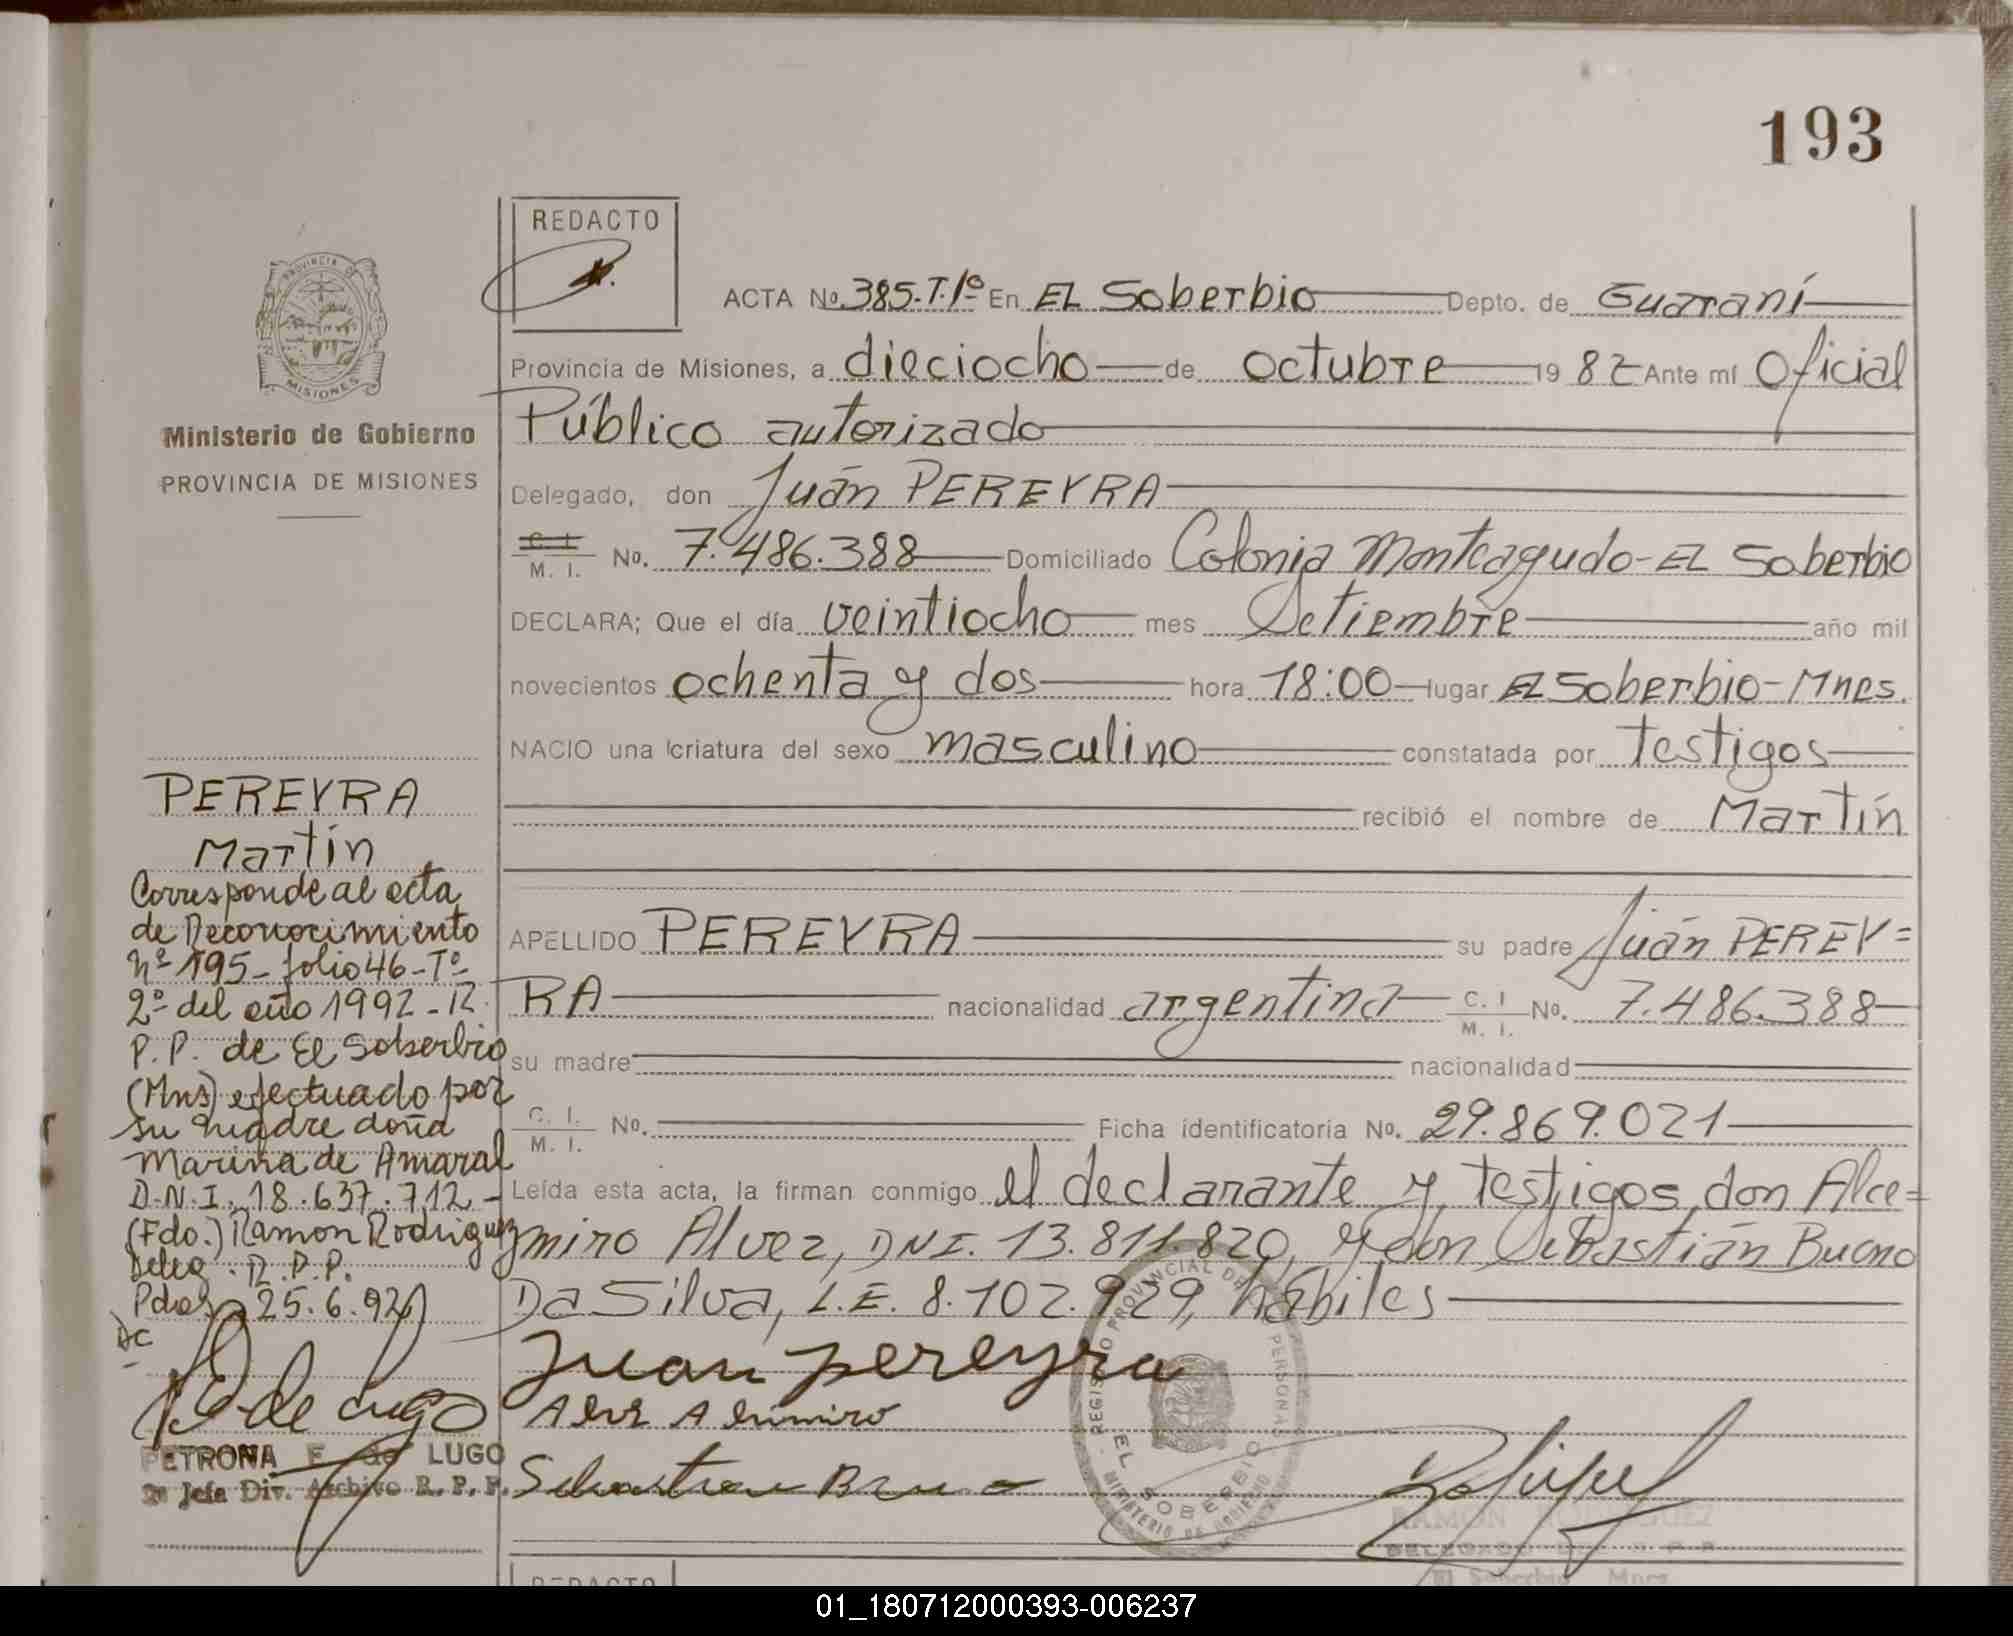 193
REDACTO
ACTA No. 385-T.1º En EL Soberbio Depto. de Guaraní
Provincia de Misiones, a dieciocho de octubre 1982 Ante mí Oficial
Público autorizado
Delegado, don Juán PEREYRA
C. I. M. I. No. 7.486.388 Domiciliado Colonia Monteagudo-EL Soberbio
DECLARA; Que el día veintiocho mes Setiembre año mil
novecientos ochenta y dos hora 18:00 lugar EL Soberbio-Mnes.
NACIO una criatura del sexo masculino constatada por testigos
recibió el nombre de Martín
APELLIDO PEREYRA su padre Juán PEREY=
RA nacionalidad argentina C. I. M. I. No. 7.486.388
su madre nacionalidad
C. I. M. I. No. Ficha identificatoria No. 29.869.021
Leída esta acta, la firman conmigo el declarante y testigos don Alce=
miro Alvez, DNI. 13.811.820, y don Sebastián Bueno
Da Silva, L.E. 8.102.929, hábiles
Juan pereyra
Sebastian
REGISTRO PROVINCIAL DE PERSONAS
EL SOBERBIO
MINISTERIO DE GOBIERNO
RAMON RODRIGUEZ
DELEGADO R. P. P.
El Soberbio Mnes.
PROVINCIA DE
MISIONES
Ministerio de Gobierno
PROVINCIA DE MISIONES
PEREYRA
Martín
Corresponde al acta
de Reconocimiento
Nº 195-folio 46-Tº
2º del año 1992-R.
P.P. de El Soberbio
(Mns) efectuado por
su madre doña
Marina de Amaral
D.N.I. 18.637.712-
(Fdo.) Ramon Rodriguez
Deleg. R.P.P.
Pdas 25.6.92
DC
de Lugo
PETRONA F. de LUGO
Jefa Div. Archivo R. P. P.
REDACTO
01_180712000393-006237